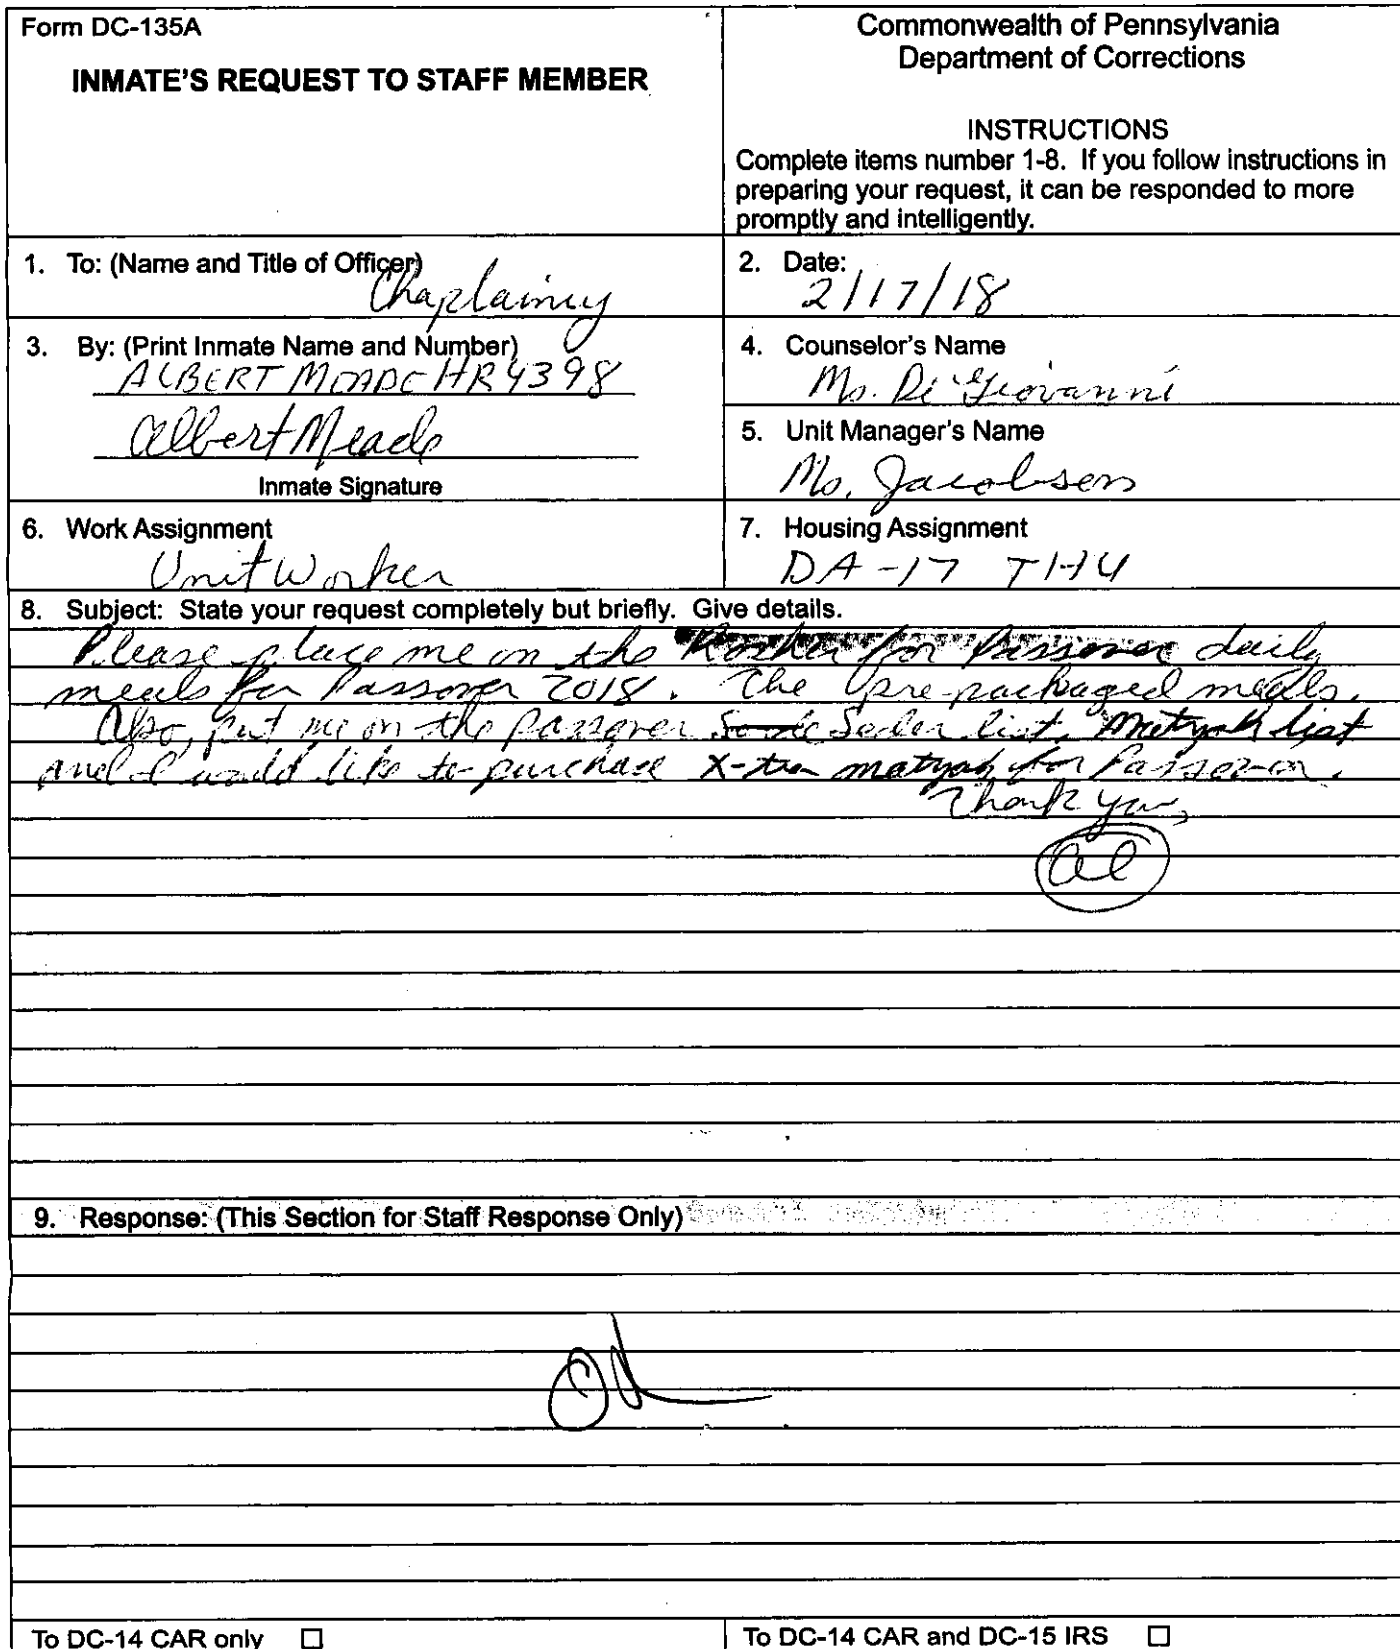 Form DC-135A
INMATE'S REQUEST TO STAFF MEMBER
Commonwealth of Pennsylvania
Department of Corrections
INSTRUCTIONS
Complete items number 1-8. If you follow instructions in
preparing your request, it can be responded to more
promptly and intelligently.
1. To: (Name and Title of Officer)
Chaplaincy
2. Date:
2/17/18
3. By: (Print Inmate Name and Number)
ALBERT MEADE HR4398
Albert Meade
Inmate Signature
4. Counselor's Name
Ms. DiGiovanni
5. Unit Manager's Name
Ms. Jacobsen
6. Work Assignment
Unit Worker
7. Housing Assignment
DA-17 THU
8. Subject: State your request completely but briefly. Give details.
Please place me on the Kosher for Passover daily
meals for Passover 2018. The pre-packaged meals.
Also, put me on the Passover Seder list, Matzah list
and I would like to purchase X-tra matzah for Passover.
Thank you,
al
9. Response: (This Section for Staff Response Only)
OK
To DC-14 CAR only ☐
To DC-14 CAR and DC-15 IRS ☐